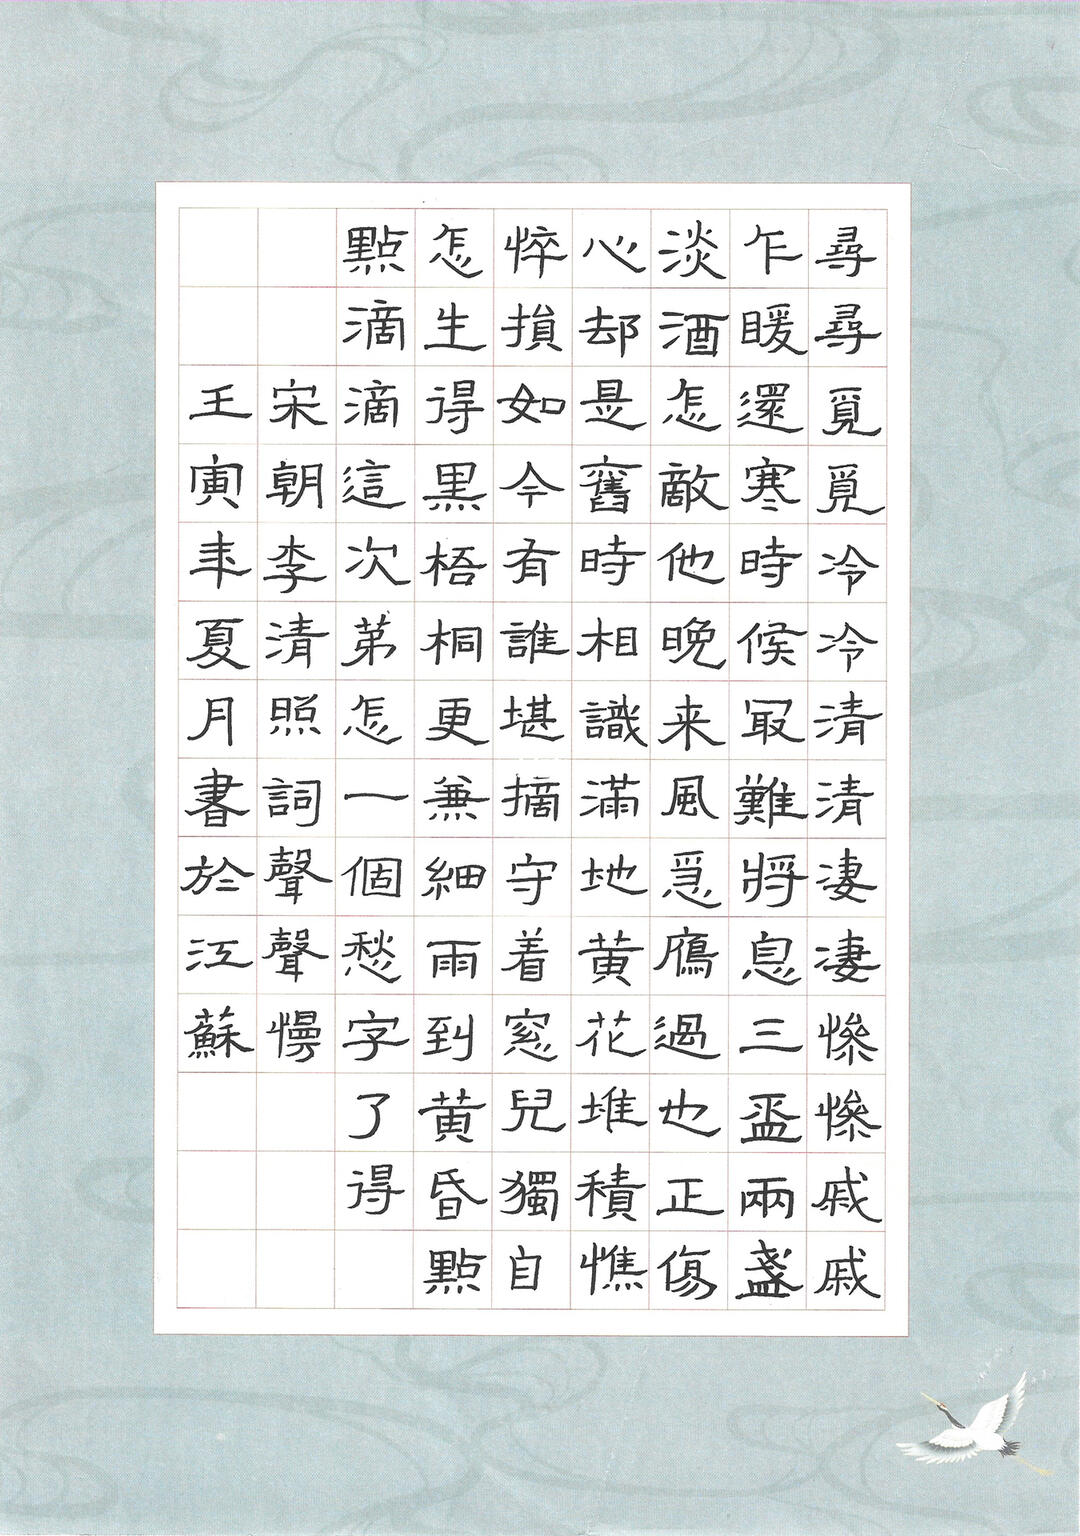 尋尋覓覓冷冷清清凄凄慘慘戚戚
乍暖還寒時候冣難將息三盃兩盞
淡酒怎敵他晚来風急鴈過也正傷
心却是舊時相識滿地黄花堆積憔
悴損如今有誰堪摘守着窓兒獨自
怎生得黑梧桐更兼細雨到黄昏點
點滴滴這次弟怎一個愁字了得
宋朝李清照詞聲聲慢
王寅年夏月書於江蘇